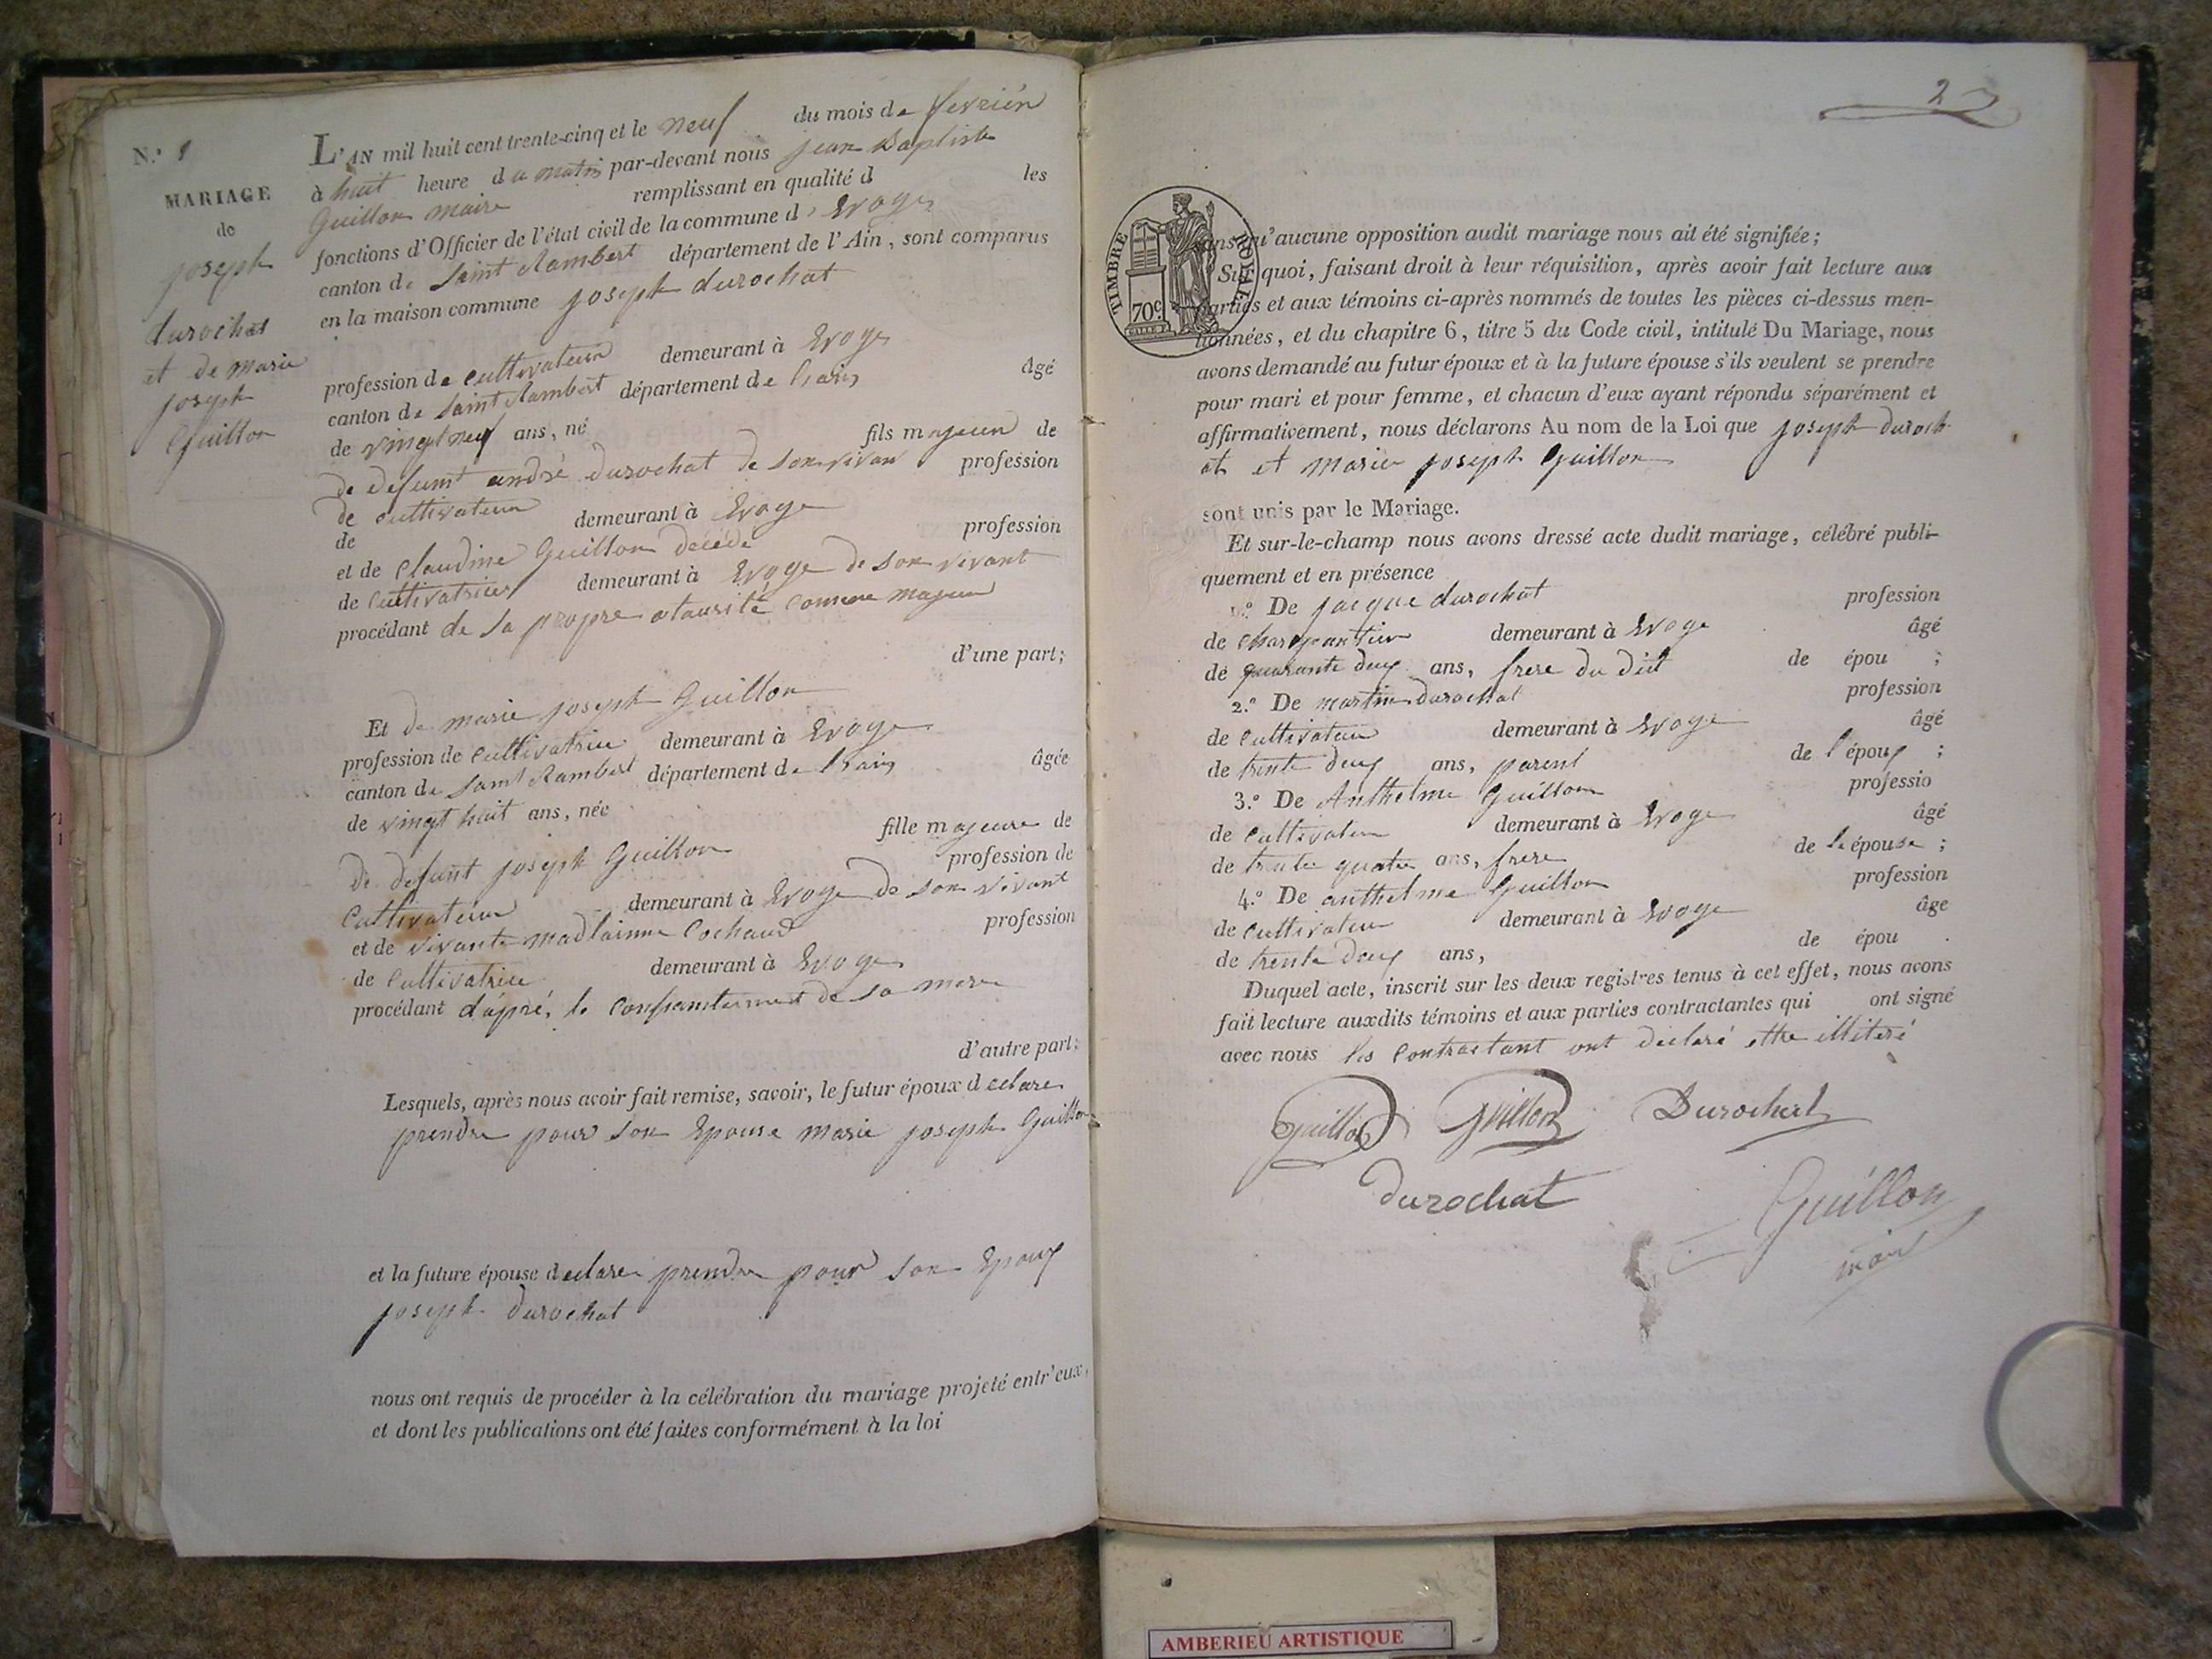 N.º 8
MARIAGE
de
joseph
durochat
et de marie
joseph
Guillon
L'AN mil huit cent trente-cinq et le neuf du mois de fevrièr
à huit heure du matin par-devant nous jean Baptiste
Guillon maire remplissant en qualité d les
fonctions d'Officier de l'état civil de la commune d'Evoge
canton de Saint Rambert département de l'Ain, sont comparus
en la maison commune joseph durochat
profession de cultivateur demeurant à Evoge
canton de Saint Rambert département de lain âgé
de vingt neuf ans, né fils majeur de
de defunt andré durochat de son vivan profession
de cultivateur demeurant à Evoge
de
et de Claudine Guillon décédé profession
de cultivatrice demeurant à Evoge de son vivant
procédant de sa propre otaurité comme majeur
d'une part;
Et de marie joseph Guillon
profession de cultivatrice demeurant à Evoge
canton de Saint Rambert département de lain âgée
de vingt huit ans, née fille majeure de
de defunt joseph Guillon profession de
Cultivateur demeurant à Evoge de son vivant
et de vivante madlainne Cochaud profession
de cultivatrice demeurant à Evoge
procédant d'apré, le de sa mere
d'autre part;
Lesquels, après nous avoir fait remise, savoir, le futur époux declare
prendre pour son Epouse marie joseph Guillon
et la future épouse declare prendre pour son Epoux
joseph durochat
nous ont requis de procéder à la célébration du mariage projeté entr'eux,
et dont les publications ont été faites conformément à la loi
2
TIMBRE ROYAL
70c
sans qu'aucune opposition audit mariage nous ait été signifiée;
Sur quoi, faisant droit à leur réquisition, après avoir fait lecture aux
parties et aux témoins ci-après nommés de toutes les pièces ci-dessus men-
tionnées, et du chapitre 6, titre 5 du Code civil, intitulé Du Mariage, nous
avons demandé au futur époux et à la future épouse s'ils veulent se prendre
pour mari et pour femme, et chacun d'eux ayant répondu séparément et
affirmativement, nous déclarons Au nom de la Loi que joseph duroch
at et marie joseph Guillon
sont unis par le Mariage.
Et sur-le-champ nous avons dressé acte dudit mariage, célébré publi-
quement et en présence
1.º De jacque durochat profession
de charpantier demeurant à Evoge âgé
de quarante deux ans, frere du dit de épou ;
2.º De martin durochat profession
de cultivateur demeurant à Evoge âgé
de trente deux ans, parent de l'époux ;
3.º De Anthelme Guillon professio
de cultivateur demeurant à Evoge âgé
de trente quatre ans, frere de l'épouse ;
4.º De anthelme Guillon profession
de cultivateur demeurant à Evoge âge
de trente deux ans, de épou .
Duquel acte, inscrit sur les deux registres tenus à cet effet, nous avons
fait lecture auxdits témoins et aux parties contractantes qui ont signé
avec nous les Contractant ont declaré ettre illiteré
Guillon Guillon Durochat
durochat Guillon
mair
AMBERIEU ARTISTIQUE